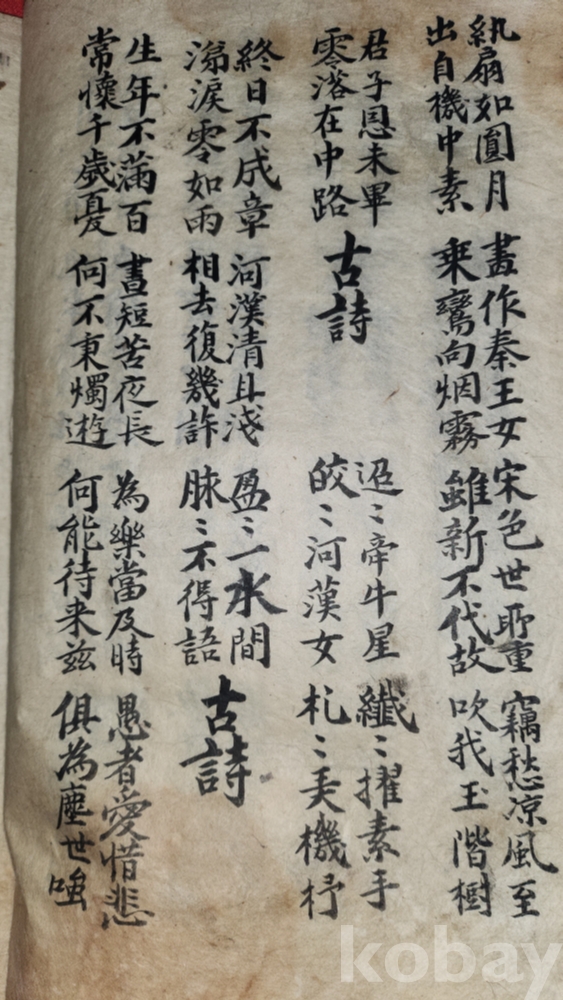 紈扇如圓月
出自機中素
畵作秦王女
乘鸞向烟霧
宋色世所重
雖新不代故
竊愁凉風至
吹我玉階樹
君子恩未畢
零落在中路
古詩
迢〻牽牛星
皎〻河漢女
纖〻擢素手
札〻弄機杼
終日不成章
淚零如雨
河漢清且淺
相去復幾許
盈〻一水間
脉〻不得語
古詩
生年不滿百
常懷千歲憂
晝短苦夜長
何不秉燭遊
為樂當及時
何能待来兹
愚者愛惜悲
俱為塵世嗤
kobay